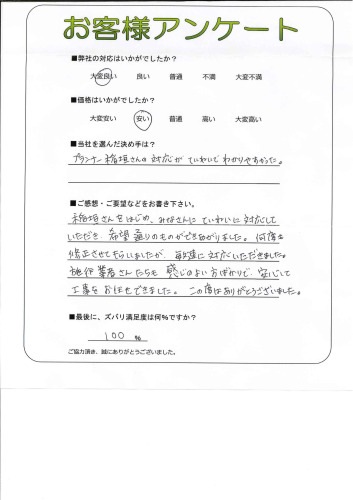 お客様アンケート
■弊社の対応はいかがでしたか？
大変良い 良い 普通 不満 大変不満
■価格はいかがでしたか？
大変安い 安い 普通 高い 大変高い
■当社を選んだ決め手は？
プランナー稲垣さんの対応がていねいでわかりやすかった。
■ご感想・ご要望などをお書き下さい。
稲垣さんをはじめ、みなさんにていねいに対応して
いただき、希望通りのものができあがりました。何度も
修正させてもらいましたが、毎度に対応いただきました。
施行業者さんたちも感じのよい方ばかりで、安心して
工事をおまかせできました。この度はありがとうございました。
■最後に、ズバリ満足度は何%ですか？
100 %
ご協力頂き、誠にありがとうございました。